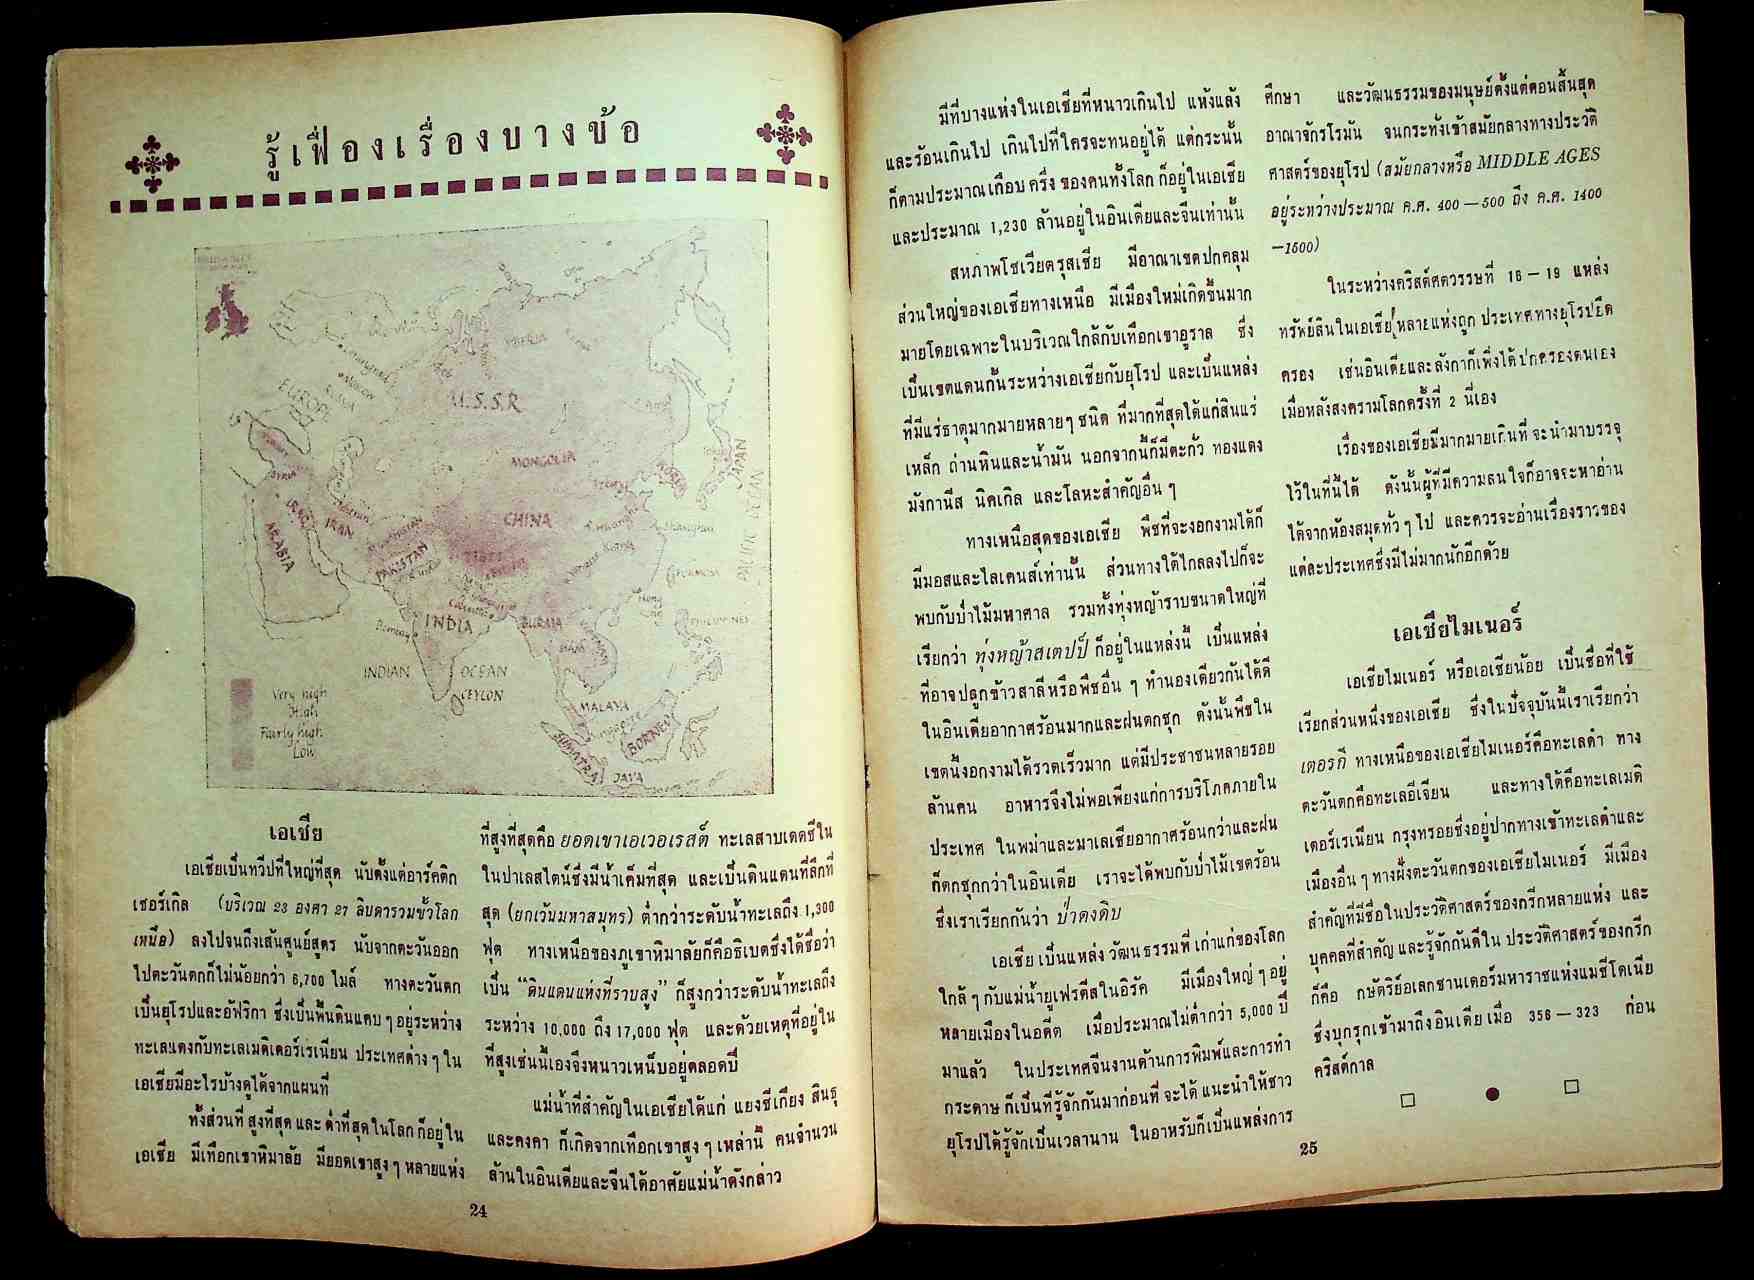 รู้เฟื่องเรื่องบางข้อ
EUROPE
U.S.S.R
SIBERIA
MOSCOW
MONGOLIA
CHINA
TIBET
KOREA
JAPAN
PACIFIC OCEAN
SYRIA
IRAQ
IRAN
ARABIA
PAKISTAN
INDIA
Bombay
Calcutta
BURMA
SIAM
Shanghai
Hong
FORMOSA
PHILIPPINES
INDIAN
OCEAN
CEYLON
MALAYA
SUMATRA
BORNEO
JAVA
Very high
High
Fairly high
Low
เอเชีย
เอเชียเป็นทวีปที่ใหญ่ที่สุด นับตั้งแต่อาร์คติก
เซอร์เกิล (บริเวณ 23 องศา 27 ลิบดารวมขั้วโลก
เหนือ) ลงไปจนถึงเส้นศูนย์สูตร นับจากตะวันออก
ไปตะวันตกก็ไม่น้อยกว่า 6,700 ไมล์ ทางตะวันตก
เป็นยุโรปและอัฟริกา ซึ่งเป็นพื้นดินแคบ ๆ อยู่ระหว่าง
ทะเลแดงกับทะเลเมดิเตอร์เรเนียน ประเทศต่าง ๆ ใน
เอเชียมีอะไรบ้างดูได้จากแผนที่
ทั้งส่วนที่ สูงที่สุด และ ต่ำที่สุด ในโลก ก็อยู่ใน
เอเชีย มีเทือกเขาหิมาลัย มียอดเขาสูง ๆ หลายแห่ง
ที่สูงที่สุดคือ ยอดเขาเอเวอเรสต์ ทะเลสาบเดดซีใน
ในปาเลสไตน์ซึ่งมีน้ำเค็มที่สุด และเป็นดินแดนที่ลึกที่
สุด (ยกเว้นมหาสมุทร) ต่ำกว่าระดับน้ำทะเลถึง 1,300
ฟุต ทางเหนือของภูเขาหิมาลัยก็คือธิเบตซึ่งได้ชื่อว่า
เป็น “ดินแดนแห่งที่ราบสูง” ก็สูงกว่าระดับน้ำทะเลถึง
ระหว่าง 10,000 ถึง 17,000 ฟุต และด้วยเหตุที่อยู่ใน
ที่สูงเช่นนี้เองจึงหนาวเหน็บอยู่ตลอดปี
แม่น้ำที่สำคัญในเอเชียได้แก่ แยงซีเกียง สินธุ
และคงคา ก็เกิดจากเทือกเขาสูง ๆ เหล่านี้ คนจำนวน
ล้านในอินเดียและจีนได้อาศัยแม่น้ำดังกล่าว
24
มีที่บางแห่งในเอเชียที่หนาวเกินไป แห้งแล้ง
และร้อนเกินไป เกินไปที่ใครจะทนอยู่ได้ แต่กระนั้น
ก็ตามประมาณ เกือบ ครึ่ง ของคนทั้งโลก ก็อยู่ในเอเชีย
และประมาณ 1,230 ล้านอยู่ในอินเดียและจีนเท่านั้น
สหภาพโซเวียตรุสเซีย มีอาณาเขตปกคลุม
ส่วนใหญ่ของเอเชียทางเหนือ มีเมืองใหม่เกิดขึ้นมาก
มายโดยเฉพาะในบริเวณใกล้กับเทือกเขาอูราล ซึ่ง
เป็นเขตแดนกั้นระหว่างเอเชียกับยุโรป และเป็นแหล่ง
ที่มีแร่ธาตุมากมายหลายๆ ชนิด ที่มากที่สุดได้แก่สินแร่
เหล็ก ถ่านหินและน้ำมัน นอกจากนี้ก็มีตะกั่ว ทองแดง
มังกานีส นิคเกิล และโลหะสำคัญอื่น ๆ
ทางเหนือสุดของเอเชีย พืชที่จะงอกงามได้ก็
มีมอสและไลเคนส์เท่านั้น ส่วนทางใต้ไกลลงไปก็จะ
พบกับป่าไม้มหาศาล รวมทั้งทุ่งหญ้าราบขนาดใหญ่ที่
เรียกว่า ทุ่งหญ้าสเตปป์ ก็อยู่ในแหล่งนี้ เป็นแหล่ง
ที่อาจปลูกข้าวสาลีหรือพืชอื่น ๆ ทำนองเดียวกันได้ดี
ในอินเดียอากาศร้อนมากและฝนตกชุก ดังนั้นพืชใน
เขตนี้งอกงามได้รวดเร็วมาก แต่มีประชาชนหลายร้อย
ล้านคน อาหารจึงไม่พอเพียงแก่การบริโภคภายใน
ประเทศ ในพม่าและมาเลเซียอากาศร้อนกว่าและฝน
ก็ตกชุกกว่าในอินเดีย เราจะได้พบกับป่าไม้เขตร้อน
ซึ่งเราเรียกกันว่า ป่าดงดิบ
เอเชีย เป็นแหล่ง วัฒนธรรมที่ เก่าแก่ของโลก
ใกล้ ๆ กับแม่น้ำยูเฟรตีสในอิรัค มีเมืองใหญ่ ๆ อยู่
หลายเมืองในอดีต เมื่อประมาณไม่ต่ำกว่า 5,000 ปี
มาแล้ว ในประเทศจีนงานด้านการพิมพ์และการทำ
กระดาษ ก็เป็นที่รู้จักกันมาก่อนที่ จะได้ แนะนำให้ชาว
ยุโรปได้รู้จักเป็นเวลานาน ในอาหรับก็เป็นแหล่งการ
ศึกษา และวัฒนธรรมของมนุษย์ตั้งแต่ตอนสิ้นสุด
อาณาจักรโรมัน จนกระทั่งเข้าสมัยกลางทางประวัติ
ศาสตร์ของยุโรป (สมัยกลางหรือ MIDDLE AGES
อยู่ระหว่างประมาณ ค.ศ. 400 — 500 ถึง ค.ศ. 1400
—1500)
ในระหว่างคริสต์ศตวรรษที่ 16 — 19 แหล่ง
ทรัพย์สินในเอเชียหลายแห่งถูก ประเทศทางยุโรปยึด
ครอง เช่นอินเดียและลังกาก็เพิ่งได้ปกครองตนเอง
เมื่อหลังสงครามโลกครั้งที่ 2 นี่เอง
เรื่องของเอเชียมีมากมายเกินที่ จะนำมาบรรจุ
ไว้ในที่นี้ได้ ดังนั้นผู้ที่มีความสนใจก็อาจจะหาอ่าน
ได้จากห้องสมุดทั่ว ๆ ไป และควรจะอ่านเรื่องราวของ
แต่ละประเทศซึ่งมีไม่มากนักอีกด้วย
เอเชียไมเนอร์
เอเชียไมเนอร์ หรือเอเชียน้อย เป็นชื่อที่ใช้
เรียกส่วนหนึ่งของเอเชีย ซึ่งในปัจจุบันนี้เราเรียกว่า
เตอรกี ทางเหนือของเอเชียไมเนอร์คือทะเลดำ ทาง
ตะวันตกคือทะเลอีเจียน และทางใต้คือทะเลเมดิ
เตอร์เรเนียน กรุงทรอยซึ่งอยู่ปากทางเข้าทะเลดำและ
เมืองอื่น ๆ ทางฝั่งตะวันตกของเอเชียไมเนอร์ มีเมือง
สำคัญที่มีชื่อในประวัติศาสตร์ของกรีกหลายแห่ง และ
บุคคลที่สำคัญ และรู้จักกันดีใน ประวัติศาสตร์ของกรีก
ก็คือ กษัตริย์อเลกซานเดอร์มหาราชแห่งแมซีโดเนีย
ซึ่งบุกรุกเข้ามาถึงอินเดียเมื่อ 356 — 323 ก่อน
คริสต์กาล
25